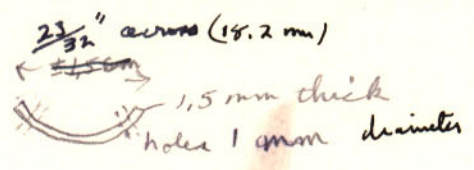 23/32" across (18.2 mm)
1.5 cm
1.5 mm thick
holes 1 mm diameter